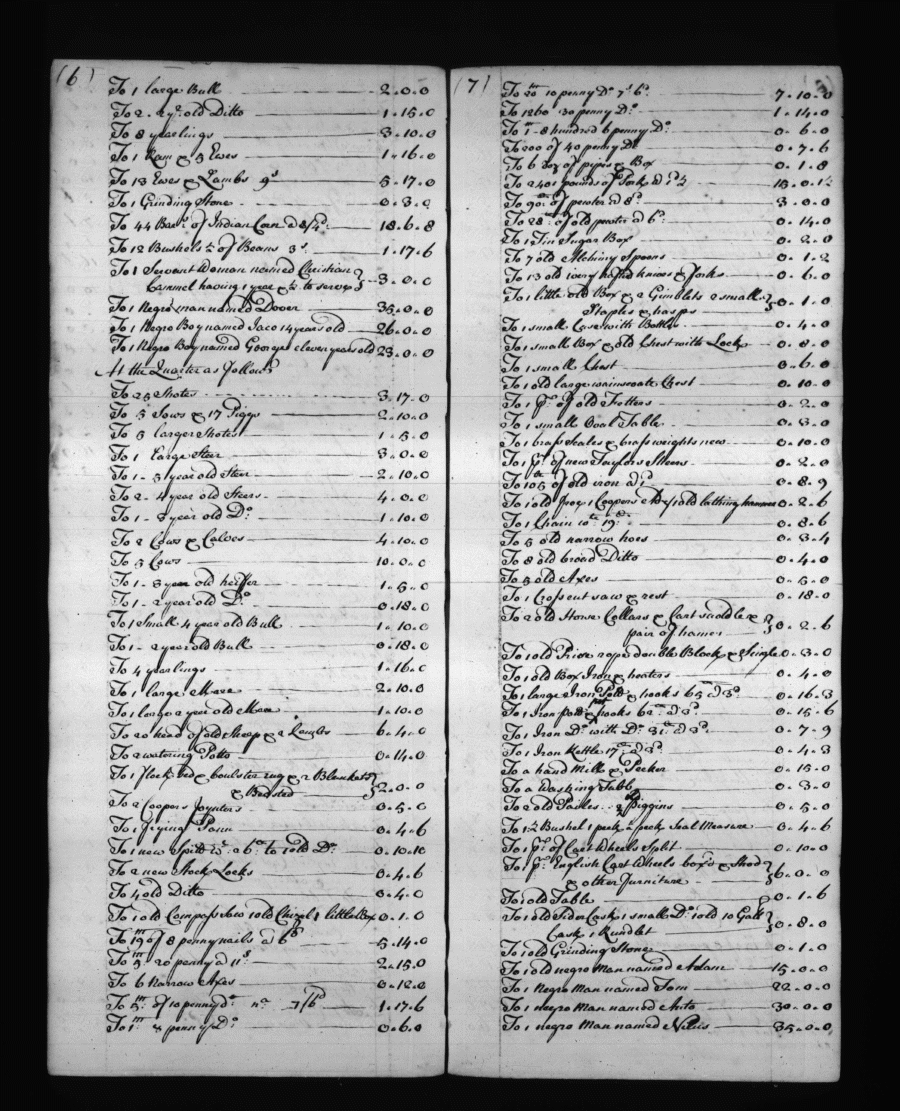 (6)
To 1 large Bull 2..0..0
To 2.. 2 yr. old Ditto 1..15..0
To 8 yearlings 3..10..0
To 1 Ram & 5 Ewes 1..16..0
To 13 Ewes & Lambs 9s 5..17..0
To 1 Grinding Stone 0..3..0
To 44 Barrs. of Indian Corn a 8/4d. 18..6..8
To 12 Bushels ½ of Beans 3s. 1..17..6
To 1 Servant Woman named Christian
Cammel having 1 year & ½ to serve } 3..0..0
To 1 Negro man named Dover 35..0..0
To 1 Negro Boy named Jaco 14 years old 26..0..0
To 1 Negro Boy named George eleven years old 23..0..0
At the Quarter as follows
To 25 Shotes 3..17..0
To 5 Sows & 17 Piggs 2..10..0
To 5 larger Shotes 1..5..0
To 1 Large Steer 3..0..0
To 1.. 5 year old Steer 2..10..0
To 2.. 4 year old Steers 4..0..0
To 1.. 3 year old Do. 1..10..0
To 2 Cows & Calves 4..10..0
To 5 Cows 10..0..0
To 1.. 3 year old heiffer 1..5..0
To 1.. 2 year old Do. 0..18..0
To 1 Small 4 year old Bull 1..10..0
To 1.. 2 year old Bull 0..18..0
To 4 yearlings 1..16..0
To 1 large Mare 2..10..0
To 1 large 2 year old Mare 1..10..0
To 20 head of old Sheep & 2 Lambs 6..4..0
To 2 watering Potts 0..14..0
To 1 flock bed & boulster rug & 2 Blankets
& Bedsted } 2..0..0
To 2 Coopers Joynters 0..5..0
To 1 frying Pann 0..4..6
To 1 new Spitt to 1 old Do. 0..10..10
To 2 new Stock Locks 0..4..6
To 4 old Ditto 0..4..0
To 1 old Compass Saw 1 old Chizel 1 little Box 0..1..0
To 19m of 8 penny nails a 6s 5..14..0
To 5m. 20 penny a 11s 2..15..0
To 6 Narrow Axes 0..12..0
To 5m. of 10 penny do. 7/6d 1..17..6
To 1m. 8 penny Do. 0..6..0
(7)
To 20m 10 penny Do. 7s 6d. 7..10..0
To 1260 30 penny Do. 1..14..0
To 1m 8 hundred 6 penny Do. 0..6..0
To 200 of 40 penny Do 0..7..6
To 6 doz of pipes & Box 0..1..8
To 2401 pounds of Pork a 1d½ 15..0..1½
To 90lb. of pewter a 8d. 3..0..0
To 28lb. of old pewter a 6d. 0..14..0
To 1 Tin Sugar Box 0..2..0
To 7 old Alchimy Spoons 0..1..2
To 13 old ivory hafted knives & forks 0..6..0
To 1 little old Box & 2 Gimblets 2 small
Staples & hasps } 0..1..0
To 1 small Case with Bottles 0..4..0
To 1 small Box & old Chest with Lock 0..8..0
To 1 small Chest 0..6..0
To 1 old large wainscoate Chest 0..10..0
To 1 pr. of old Trotters 0..2..0
To 1 small Oval Table 0..3..0
To 1 brass Scales & brass weights new 0..10..0
To 1 pr. of new Taylors Sheers 0..2..0
To 105lb of old iron a 1d 0..8..9
To 1 old Froe, 1 Coopers Adz & 1 old lathing hammer 0..2..6
To 1 Chain wt. 19lb. 0..8..6
To 5 old narrow hoes 0..3..4
To 8 old broad Ditto 0..4..0
To 5 old Axes 0..5..0
To 1 Cross cut saw & rest 0..18..0
To 2 old Horse Collars & Cart saddle &
pair of hames } 0..2..6
To 1 old Prize rope double Block & Single 0..3..0
To 1 old Box Iron & heaters 0..4..0
To 1 large Iron Pott & hooks 65lb a 3d. 0..16..3
To 1 Iron pott & pot hooks 62lb. a 3d. 0..15..6
To 1 Iron Do. with Do. 31lb. a 3d. 0..7..9
To 1 Iron Kettle 17lb a 3d. 0..4..3
To a hand Mill & Pecker 0..15..0
To a Washing Tubb 0..3..0
To 2 old Pailes.. 2 Piggins 0..5..0
To 1 ½ Bushel 1 peck ½ peck Seal Measure 0..4..6
To 1 pr. of Cart Wheels Split 0..10..0
To 1 pr. English Cart Wheels box'd & Shod
& other furniture } 6..0..0
To 1 old Table 0..1..6
To 1 old Sider Cask 1 small Do. 1 old 10 Gall
Cask 1 Rundlet } 0..8..0
To 1 old Grinding Stone 0..1..0
To 1 old negro Man named Adam 15..0..0
To 1 Negro Man named Tom 22..0..0
To 1 negro Man named Anto 30..0..0
To 1 negro Man named 35..0..0